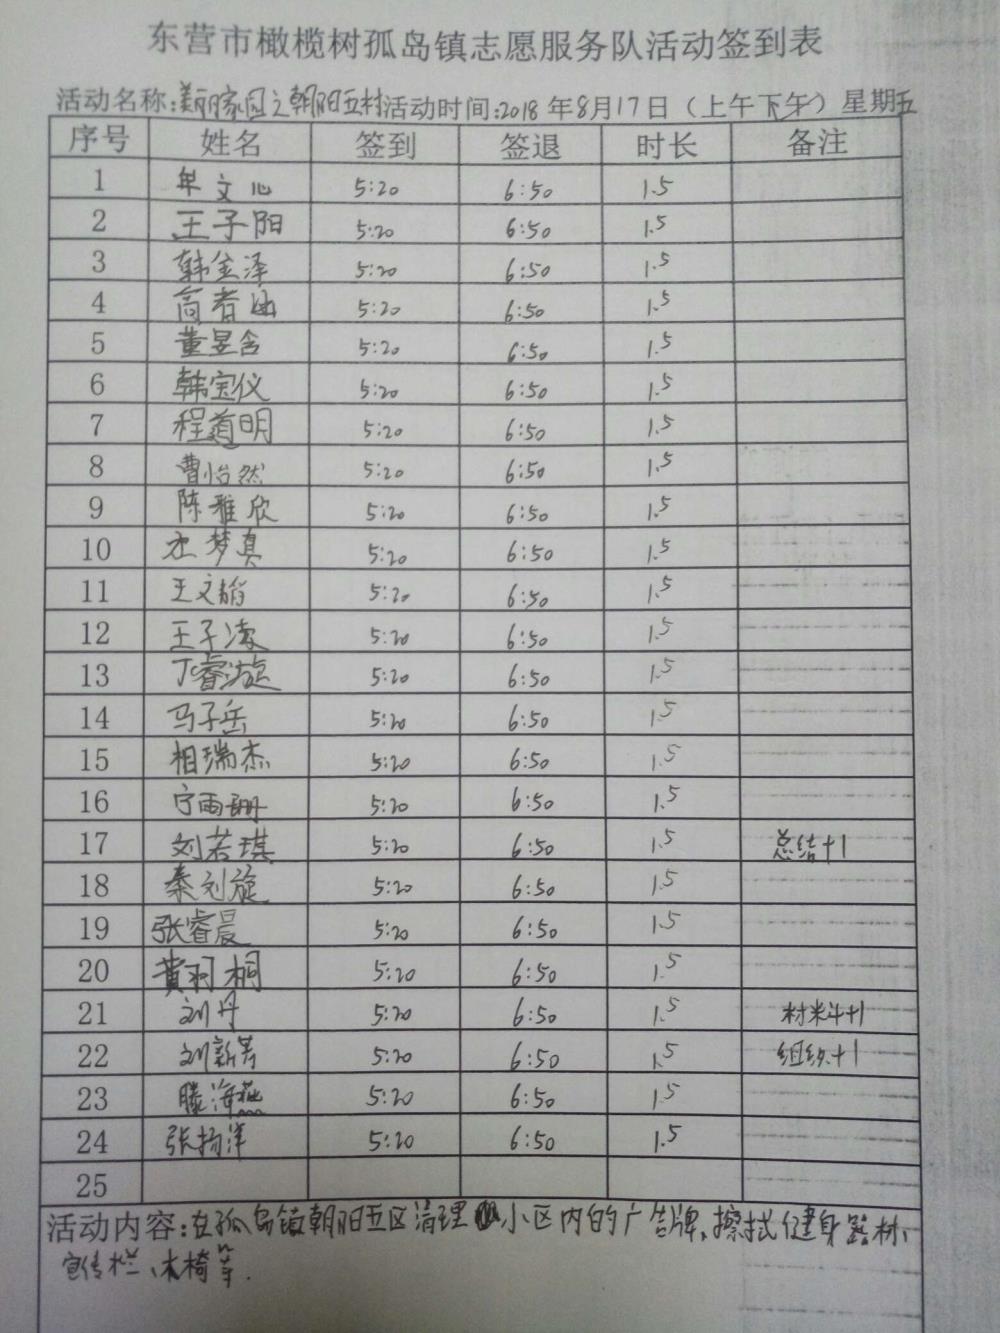 东营市橄榄树孤岛镇志愿服务队活动签到表
活动名称:美丽家园之朝阳五村活动时间:2018年8月17日(上午下午)星期五
序号 姓名 签到 签退 时长 备注
1 牟文心 5:20 6:50 1.5
2 王子阳 5:20 6:50 1.5
3 韩金泽 5:20 6:50 1.5
4 高者 5:20 6:50 1.5
5 董昱含 5:20 6:50 1.5
6 韩宝仪 5:20 6:50 1.5
7 程道明 5:20 6:50 1.5
8 曹怡然 5:20 6:50 1.5
9 陈雅欣 5:20 6:50 1.5
10 梦真 5:20 6:50 1.5
11 王文韬 5:20 6:50 1.5
12 王子凌 5:20 6:50 1.5
13 丁睿漩 5:20 6:50 1.5
14 马子岳 5:20 6:50 1.5
15 相瑞杰 5:20 6:50 1.5
16 宁雨珊 5:20 6:50 1.5
17 刘若琪 5:20 6:50 1.5 总结+1
18 秦刘旋 5:20 6:50 1.5
19 张睿晨 5:20 6:50 1.5
20 黄羽桐 5:20 6:50 1.5
21 刘丹 5:20 6:50 1.5 材料+1
22 刘新芳 5:20 6:50 1.5 组织+1
23 滕海燕 5:20 6:50 1.5
24 张扬洋 5:20 6:50 1.5
25
活动内容:在孤岛镇朝阳五区清理小区内的广告牌、擦拭健身器材、
宣传栏、木椅等.